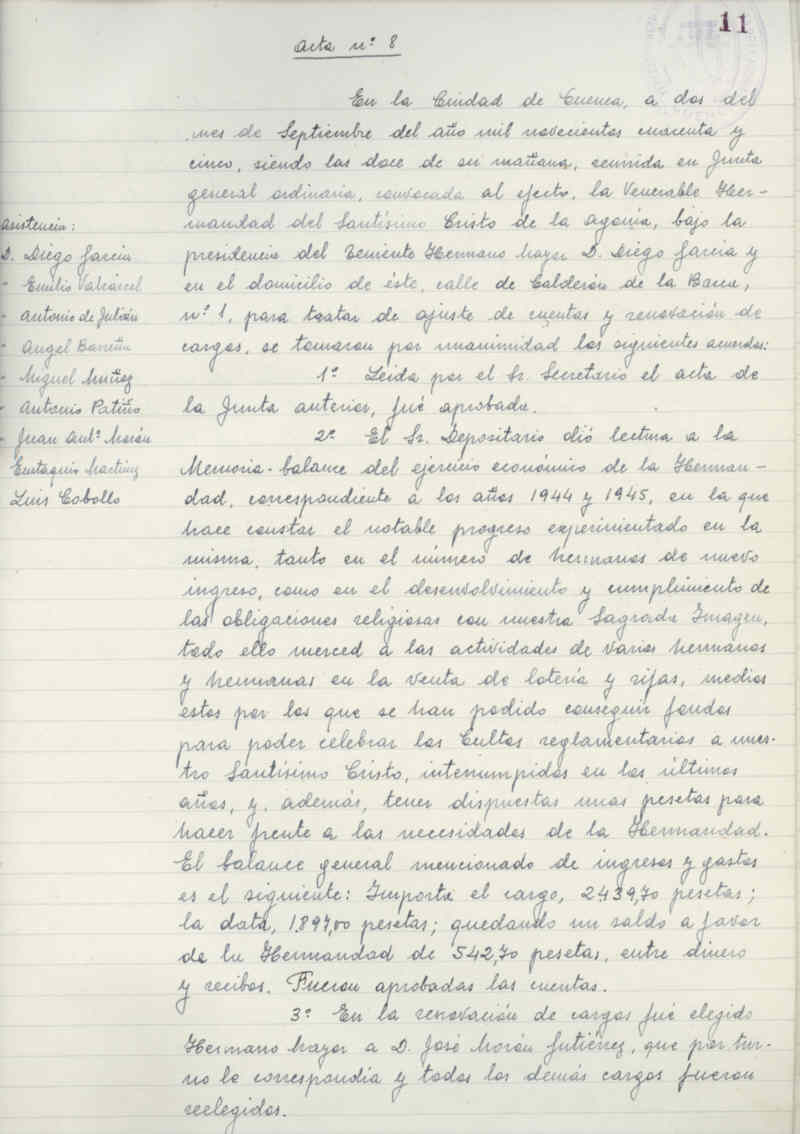 11
Acta nº 8
En la Ciudad de Cuenca, a dos del
mes de Septiembre del año mil novecientos cuarenta y
cinco, siendo las doce de su mañana, reunida en Junta
general ordinaria, convocada al efecto, la Venerable Her-
mandad del Santísimo Cristo de la Agonía, bajo la
presidencia del Teniente Hermano Mayor D. Diego García y
en el domicilio de éste, calle de Calderón de la Barca,
nº 1, para tratar de ajuste de cuentas y renovación de
cargos, se tomaron por unanimidad los siguientes acuerdos:
Asistencia:
D. Diego García
" Emilio Valcárcel
" Antonio de Julián
" Angel
" Miguel Muñoz
" Antonio Patiño
" Juan Antº Morón
Eustaquio Martínez
Luis Cobollo
1º Leída por el Sr. Secretario el acta de
la Junta anterior, fué aprobada.
2º El Sr. Depositario dió lectura a la
Memoria-balance del ejercicio económico de la Herman-
dad, correspondiente a los años 1944 y 1945, en la que
hace constar el notable progreso experimentado en la
misma, tanto en el número de hermanos de nuevo
ingreso, como en el desenvolvimiento y cumplimiento de
las obligaciones religiosas con nuestra Sagrada Imagen,
todo ello merced a las actividades de varios hermanos
y hermanas en la venta de lotería y rifas, medios
estos por los que se han podido conseguir fondos
para poder celebrar los Cultos reglamentarios a nues-
tro Santísimo Cristo, interrumpidos en los últimos
años, y, además, tener dispuestas unas pesetas para
hacer frente a las necesidades de la Hermandad.
El balance general mencionado de ingresos y gastos
es el siguiente: Importa el cargo, 2439,70 pesetas;
la data, 1.897,00 pesetas; quedando un saldo a favor
de la Hermandad de 542,70 pesetas, entre dinero
y recibos. Fueron aprobadas las cuentas.
3º En la renovación de cargos fué elegido
Hermano Mayor a D. José Morón Gutiérrez, que por tur-
no le correspondía y todos los demás cargos fueron
reelegidos.